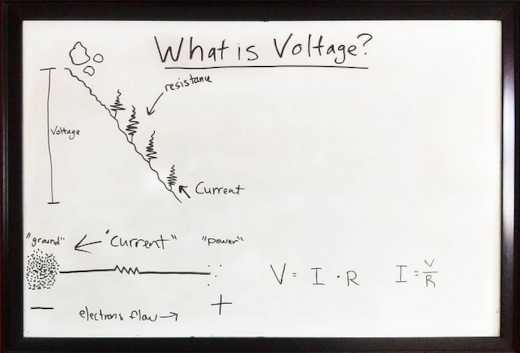 What is Voltage?
resistance
Voltage
Current
"ground" ← "Current" "power"
− electrons flow → +
V = I · R I = V/R